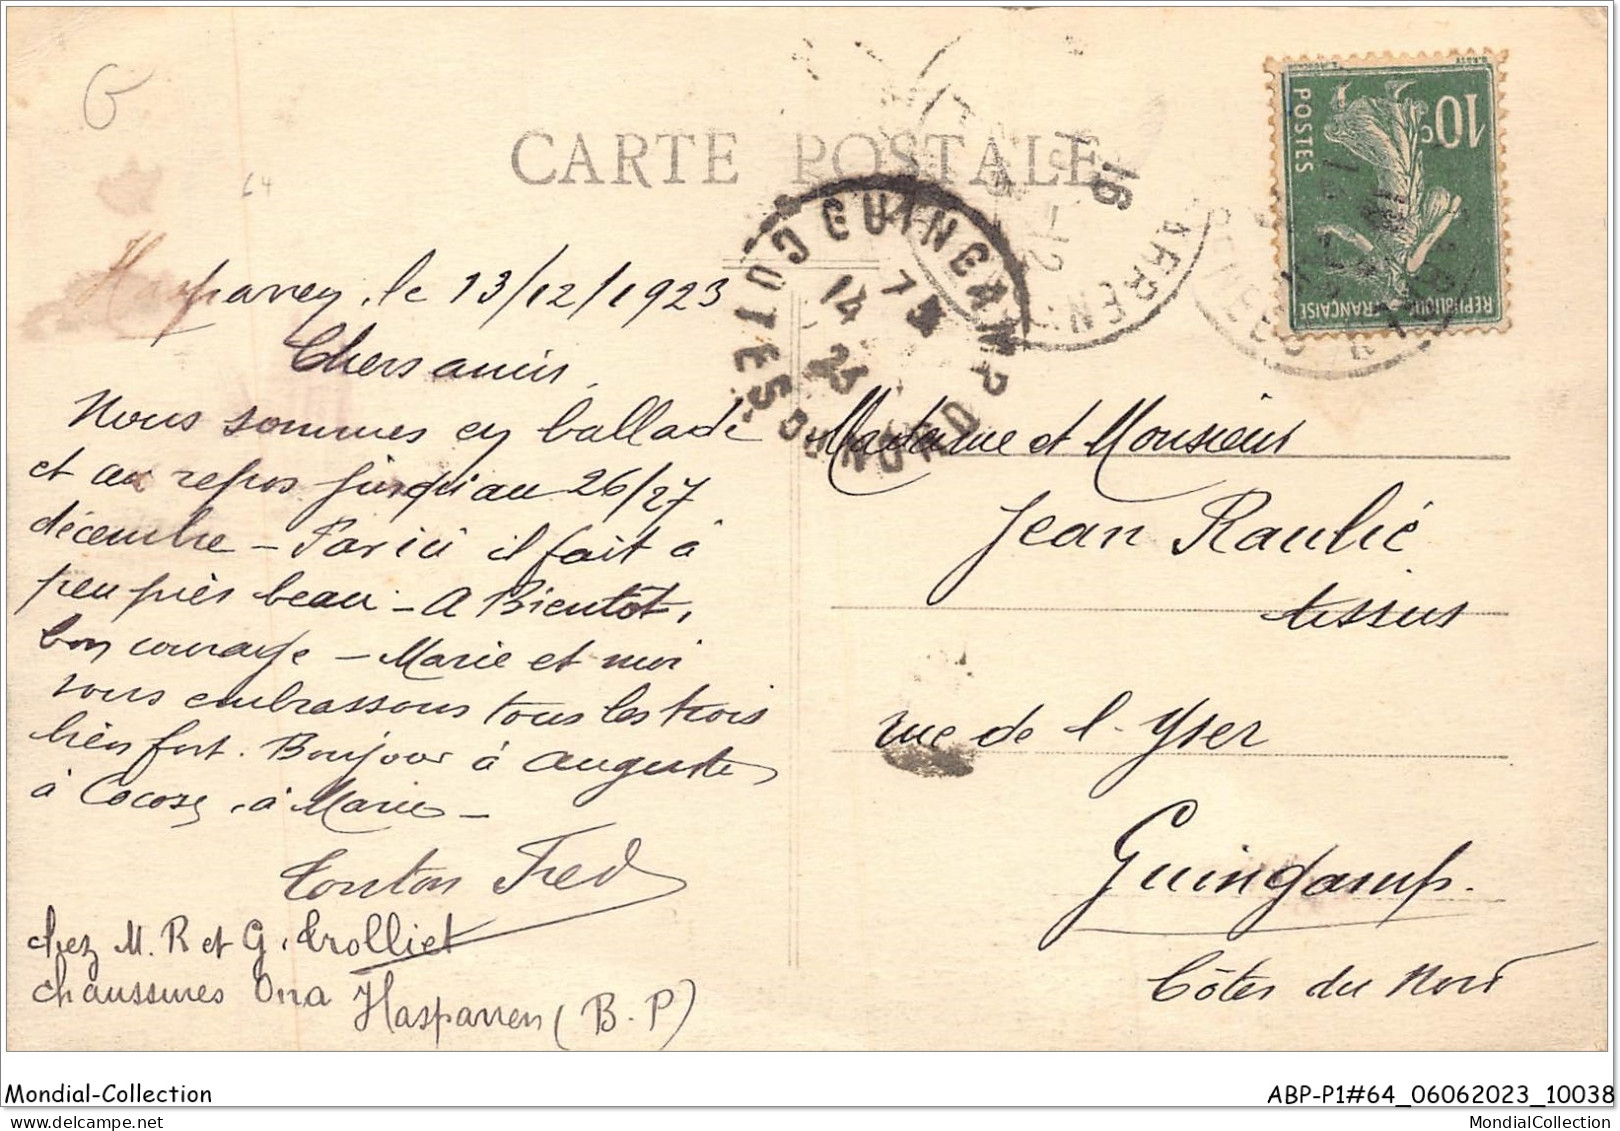 G
64
CARTE POSTALE
10c
POSTES
REPUBLIQUE FRANÇAISE
16
12
GUINGAMP
COTES DU NORD
14 - 12
23
Hasparren, le 13/12/1923
Chers amis,
Nous sommes en ballade
et au repos jusqu'au 26/27
décembre - Par ici il fait à
peu près beau - A Bientôt,
bon courage - Marie et moi
vous embrassons tous les trois
bien fort. Bonjour à Auguste
à Cocose, à Marie -
Tonton Fred
chez M. R et G. Trolliet
chaussures Ona
Hasparren (B.P)
Madame et Monsieur
Jean Raulié
tissus
rue de l'Yser
Guingamp.
Côtes du Nord
Mondial-Collection
ABP-P1#64_06062023_10038
MondialCollection